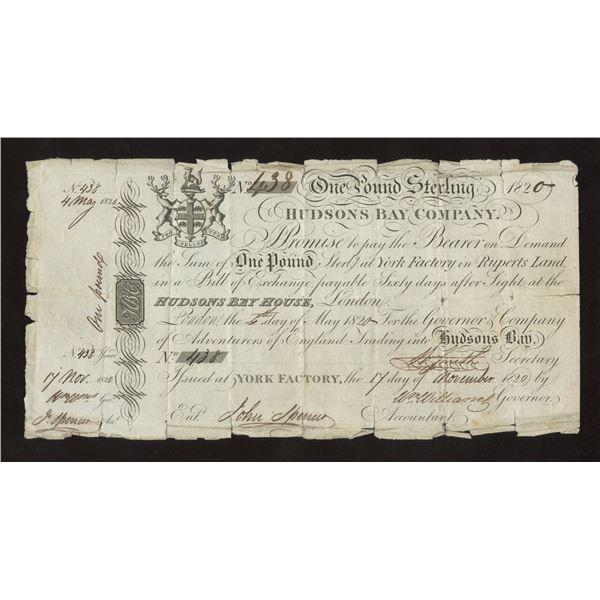 No. 438
4 May 1820
One pound
HBC
No. 438 Issued
17 Nov. 1820
Gov.
J. Spencer Acct.
PRO PELLE CUTEM
No. 438 One Pound Sterling 1820
HUDSONS BAY COMPANY.
Promise to pay the Bearer on Demand
the Sum of One Pound Sterlg. at York Factory in Ruperts Land
in a Bill of Exchange payable Sixty days after Sight, at the
HUDSONS BAY HOUSE, London.
London the day of May 1820 For the Governor & Company
of Adventurers of England Trading into Hudsons Bay.
No. 438 Secretary
Issued at YORK FACTORY, the 17 day of November 1820 by
Wm. Williams Governor.
Entd. John Spencer Accountant.